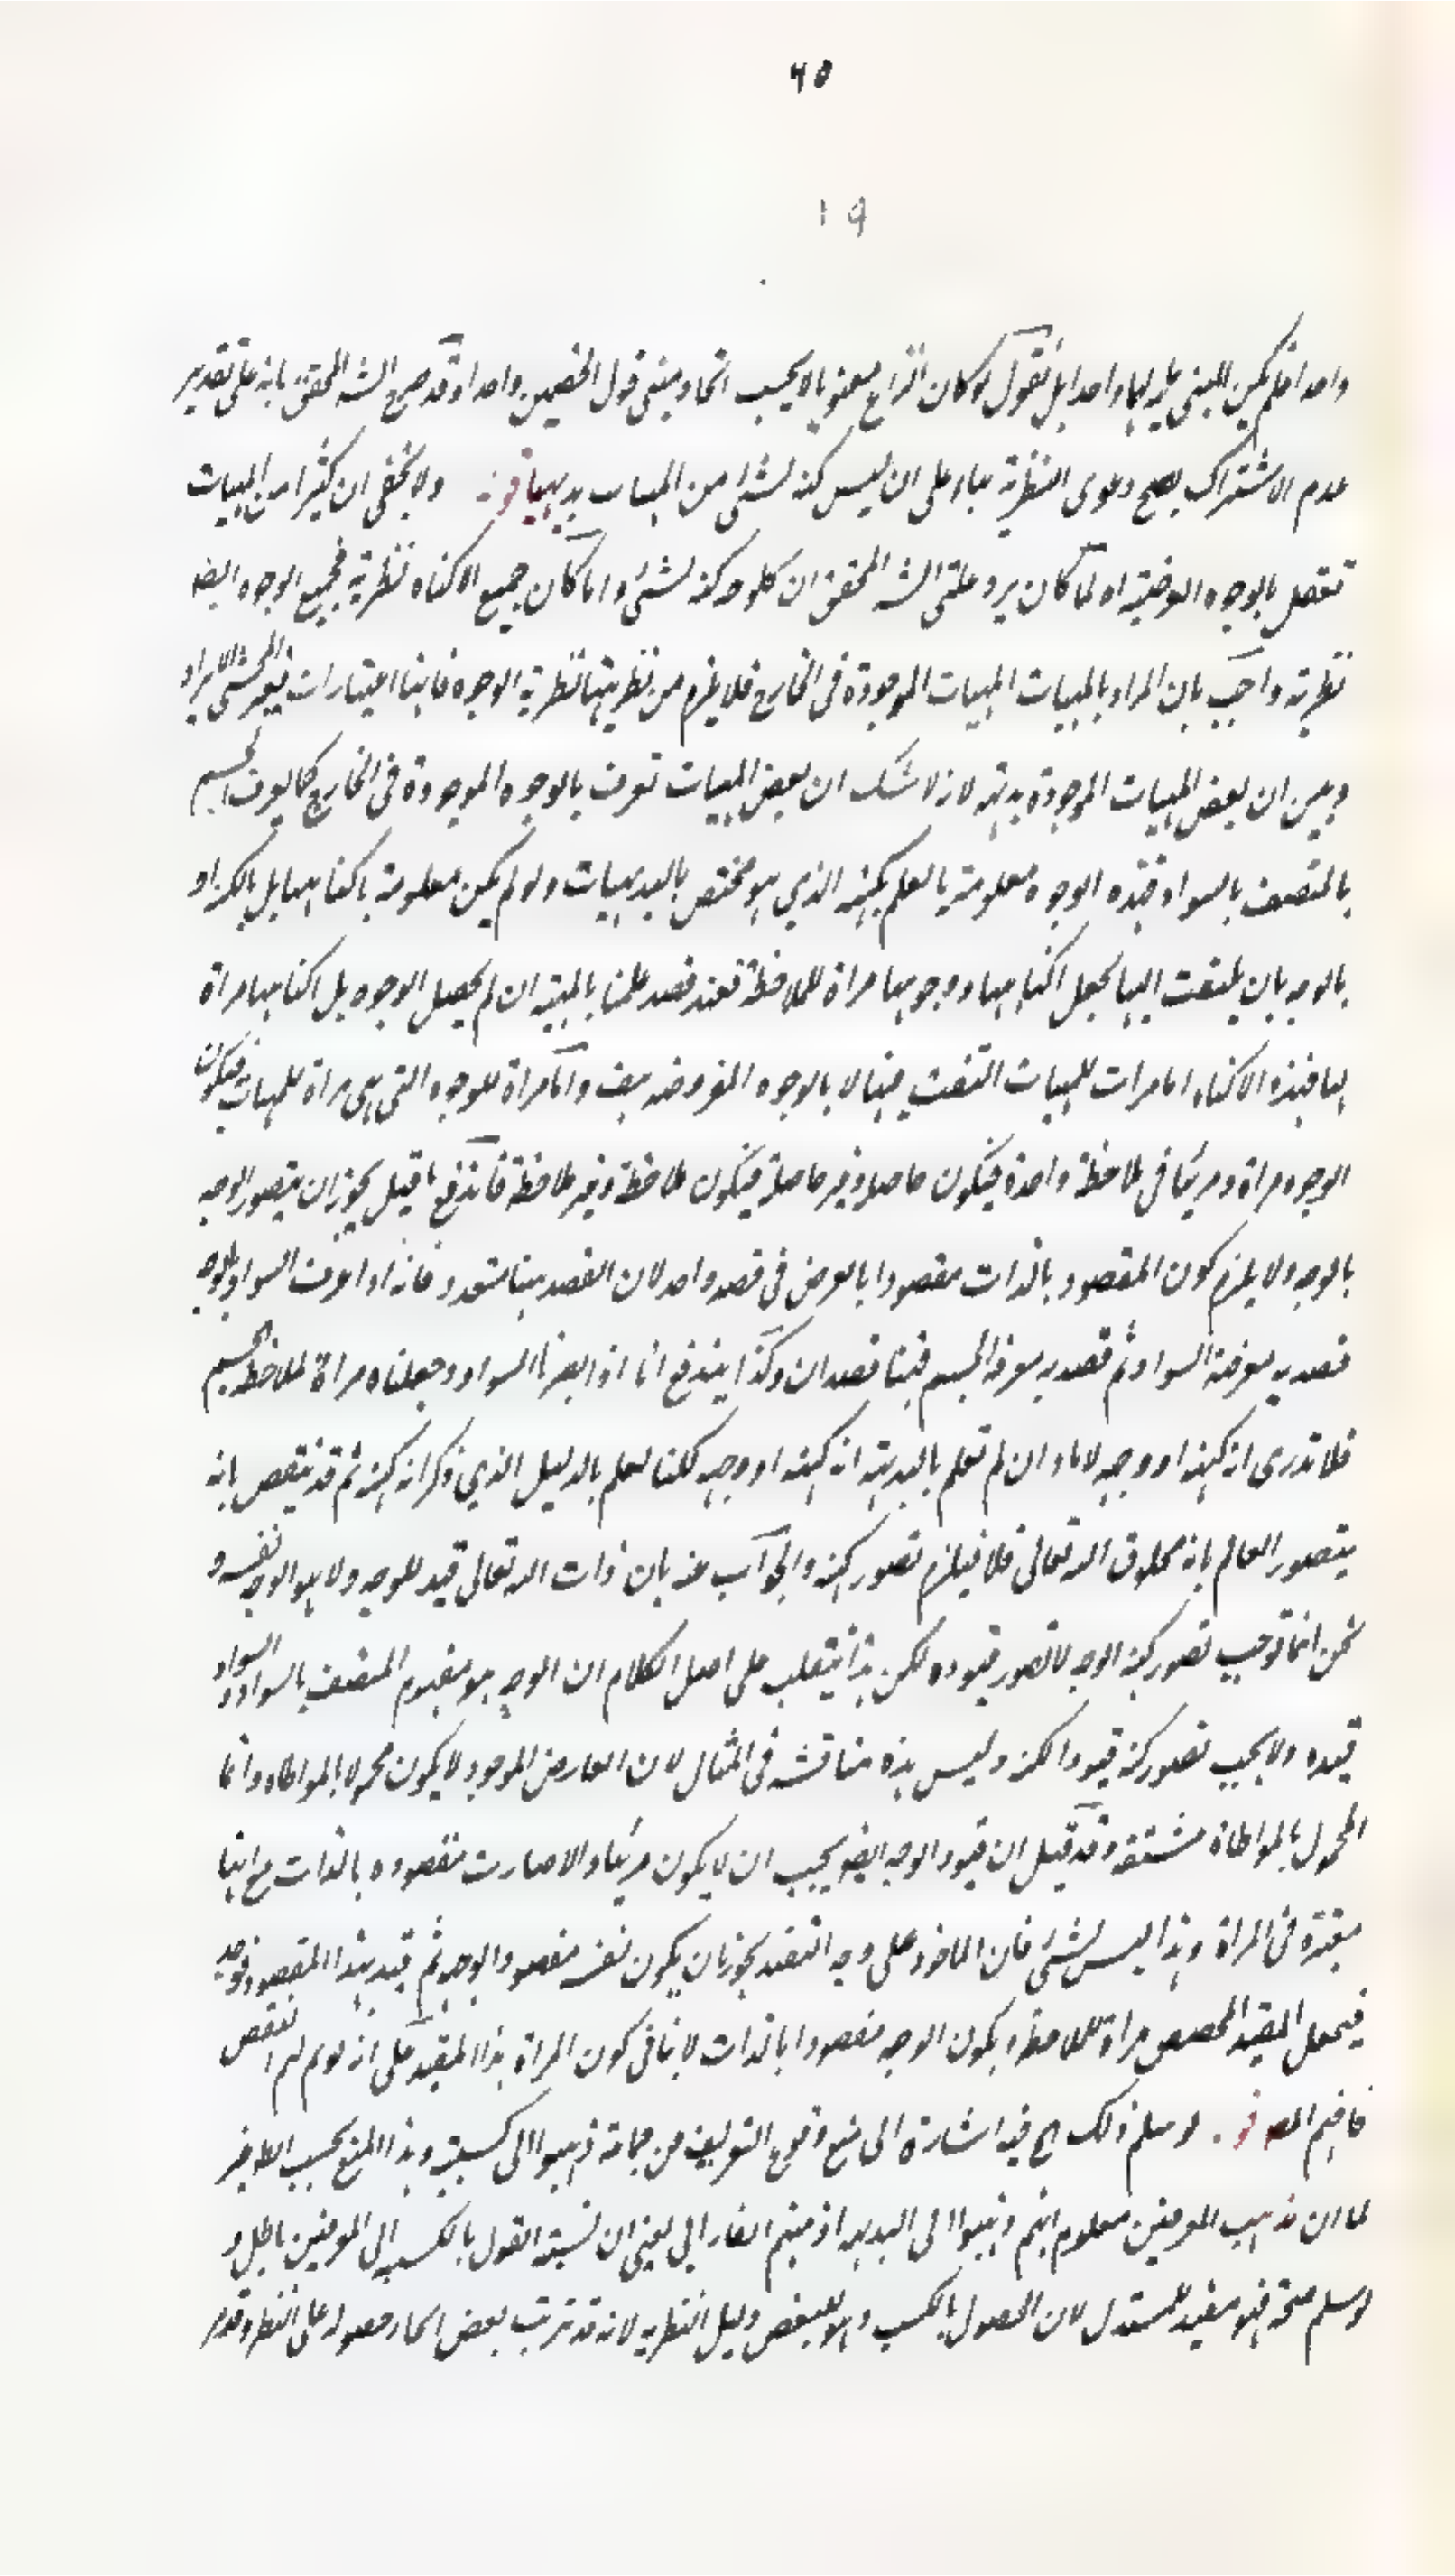 ٦٥
١٩
واحدا فلم يكن المبنى عليه لهما واحدا بل نقول لو كان النزاع معنويا لا يجب اتحاد مبنى قول الخصمين واحدا وقد صرح الشه المحقق بانه على تقدير
عدم الاشتراك يصح دعوى النظرية بناء على ان ليس كنه لشئ من المهيات بديهيا قوله ولا يخفى ان كثيرا من المهيات
تعقل بالوجوه العرضية اه لما كان يرد على الشه المحقق ان كل وجه كنه لشئ واذا كان جميع الاكناه نظرية فجميع الوجوه ايضا
نظرية واجيب بان المراد بالمهيات المهيات الموجودة فى الخارج فلا يلزم من نظريتها نظرية الوجوه فانها اعتبارات فغير المحشى الايراد
وبين ان بعض المهيات الموجودة بديهة لانه لا شك ان بعض المهيات تعرف بالوجوه الموجودة فى الخارج كما يعرف الجسم
بالمتصف بالسواد فهذه الوجوه معلومة بالعلم بكنهه الذي هو مختص بالبديهيات ولو لم يكن معلومة باكناهها بل بالكنه او
بالوجه بان يلتفت اليها بجعل اكناهها ووجوهها مراة للملاحظة فعند قصد علمنا بالمهية ان لم يحصل الوجوه بل اكناهها مراة
لها فهذه الاكناه اما مرات للمهيات التفت فيها لا بالوجوه المفروضه هف واما مراة للوجوه التى هى مراة للمهيات فيكون
الوجوه مراة ومرئيا فى ملاحظة واحدة فيكون حاصلة وغير حاصلة فيكون ملاحظة وغير ملاحظة فاندفع ما قيل يجوز ان يتصور الوجه
بالوجه ولا يلزم كون المقصود بالذات مقصودا بالعرض فى قصد واحد لان القصد هنا متعدد فانه اذا عرف السواد بالوجه
قصد به معرفة السواد ثم قصد به معرفة الجسم فهنا قصدان وكذا يندفع انا اذا ابصرنا السواد وجعلناه مراة لملاحظة الجسم
فلا ندرى انه كنهه او وجهه لانا وان لم نعلم بالبديهة انه كنهه او وجهه لكنا نعلم بالدليل الذي ذكر انه كنهه ثم قد ينقض بانه
يتصور العالم بانه مخلوق الله تعالى فلا فيلزم تصور كنهه والجواب عنه بان ذات الله تعالى قيد للوجه ولا هو الوجه نفسه و
نحن انما نوجب تصور كنه الوجه لا تصور قيوده لكن هذا ينقلب على اصل الكلام ان الوجه هو مفهوم المتصف بالسواد والسواد
قيده ولا يجب تصور كنه قيود الكنه وليس هذه مناقشه فى المثال لان العارض الموجود لا يكون محمولا بالمواطاه وانما
المحمول بالمواطاة مشتقة وقد قيل ان قيود الوجه ايضا يجب ان لا يكون مرئيا والا صارت مقصوده بالذات مع انها
معتبرة فى المراة وهذا ليس بشئ فان الماخوذ على وجه التقييد يجوز ان يكون نفسه مقصود الوجه ثم قيد بهذا المقصود فوجه
فيجعل المقيد المحصص مراة للملاحظة ويكون الوجه مقصودا بالذات لا ينافى كون المراة هذا المقيد على انه لو تم لتم النقض
فافهم قو. لو سلم ذلك اه فيه اشارة الى منع وقوع التعريف من جماعة ذهبوا الى كسبية وهذا المنع بحسب الظاهر
لما ان مذهب المعرفين معلوم انهم ذهبوا الى البديهه اذ منهم الفارابى يعنى ان نسبة القول بالكسبية الى المعرفين باطل و
لو سلم صحة فهو مفيد للمستدل لان الحصول بالكسب ولو لبعض دليل النظرية لانه قد ترتب بعض انحاء حصوله على النظر وقد مر